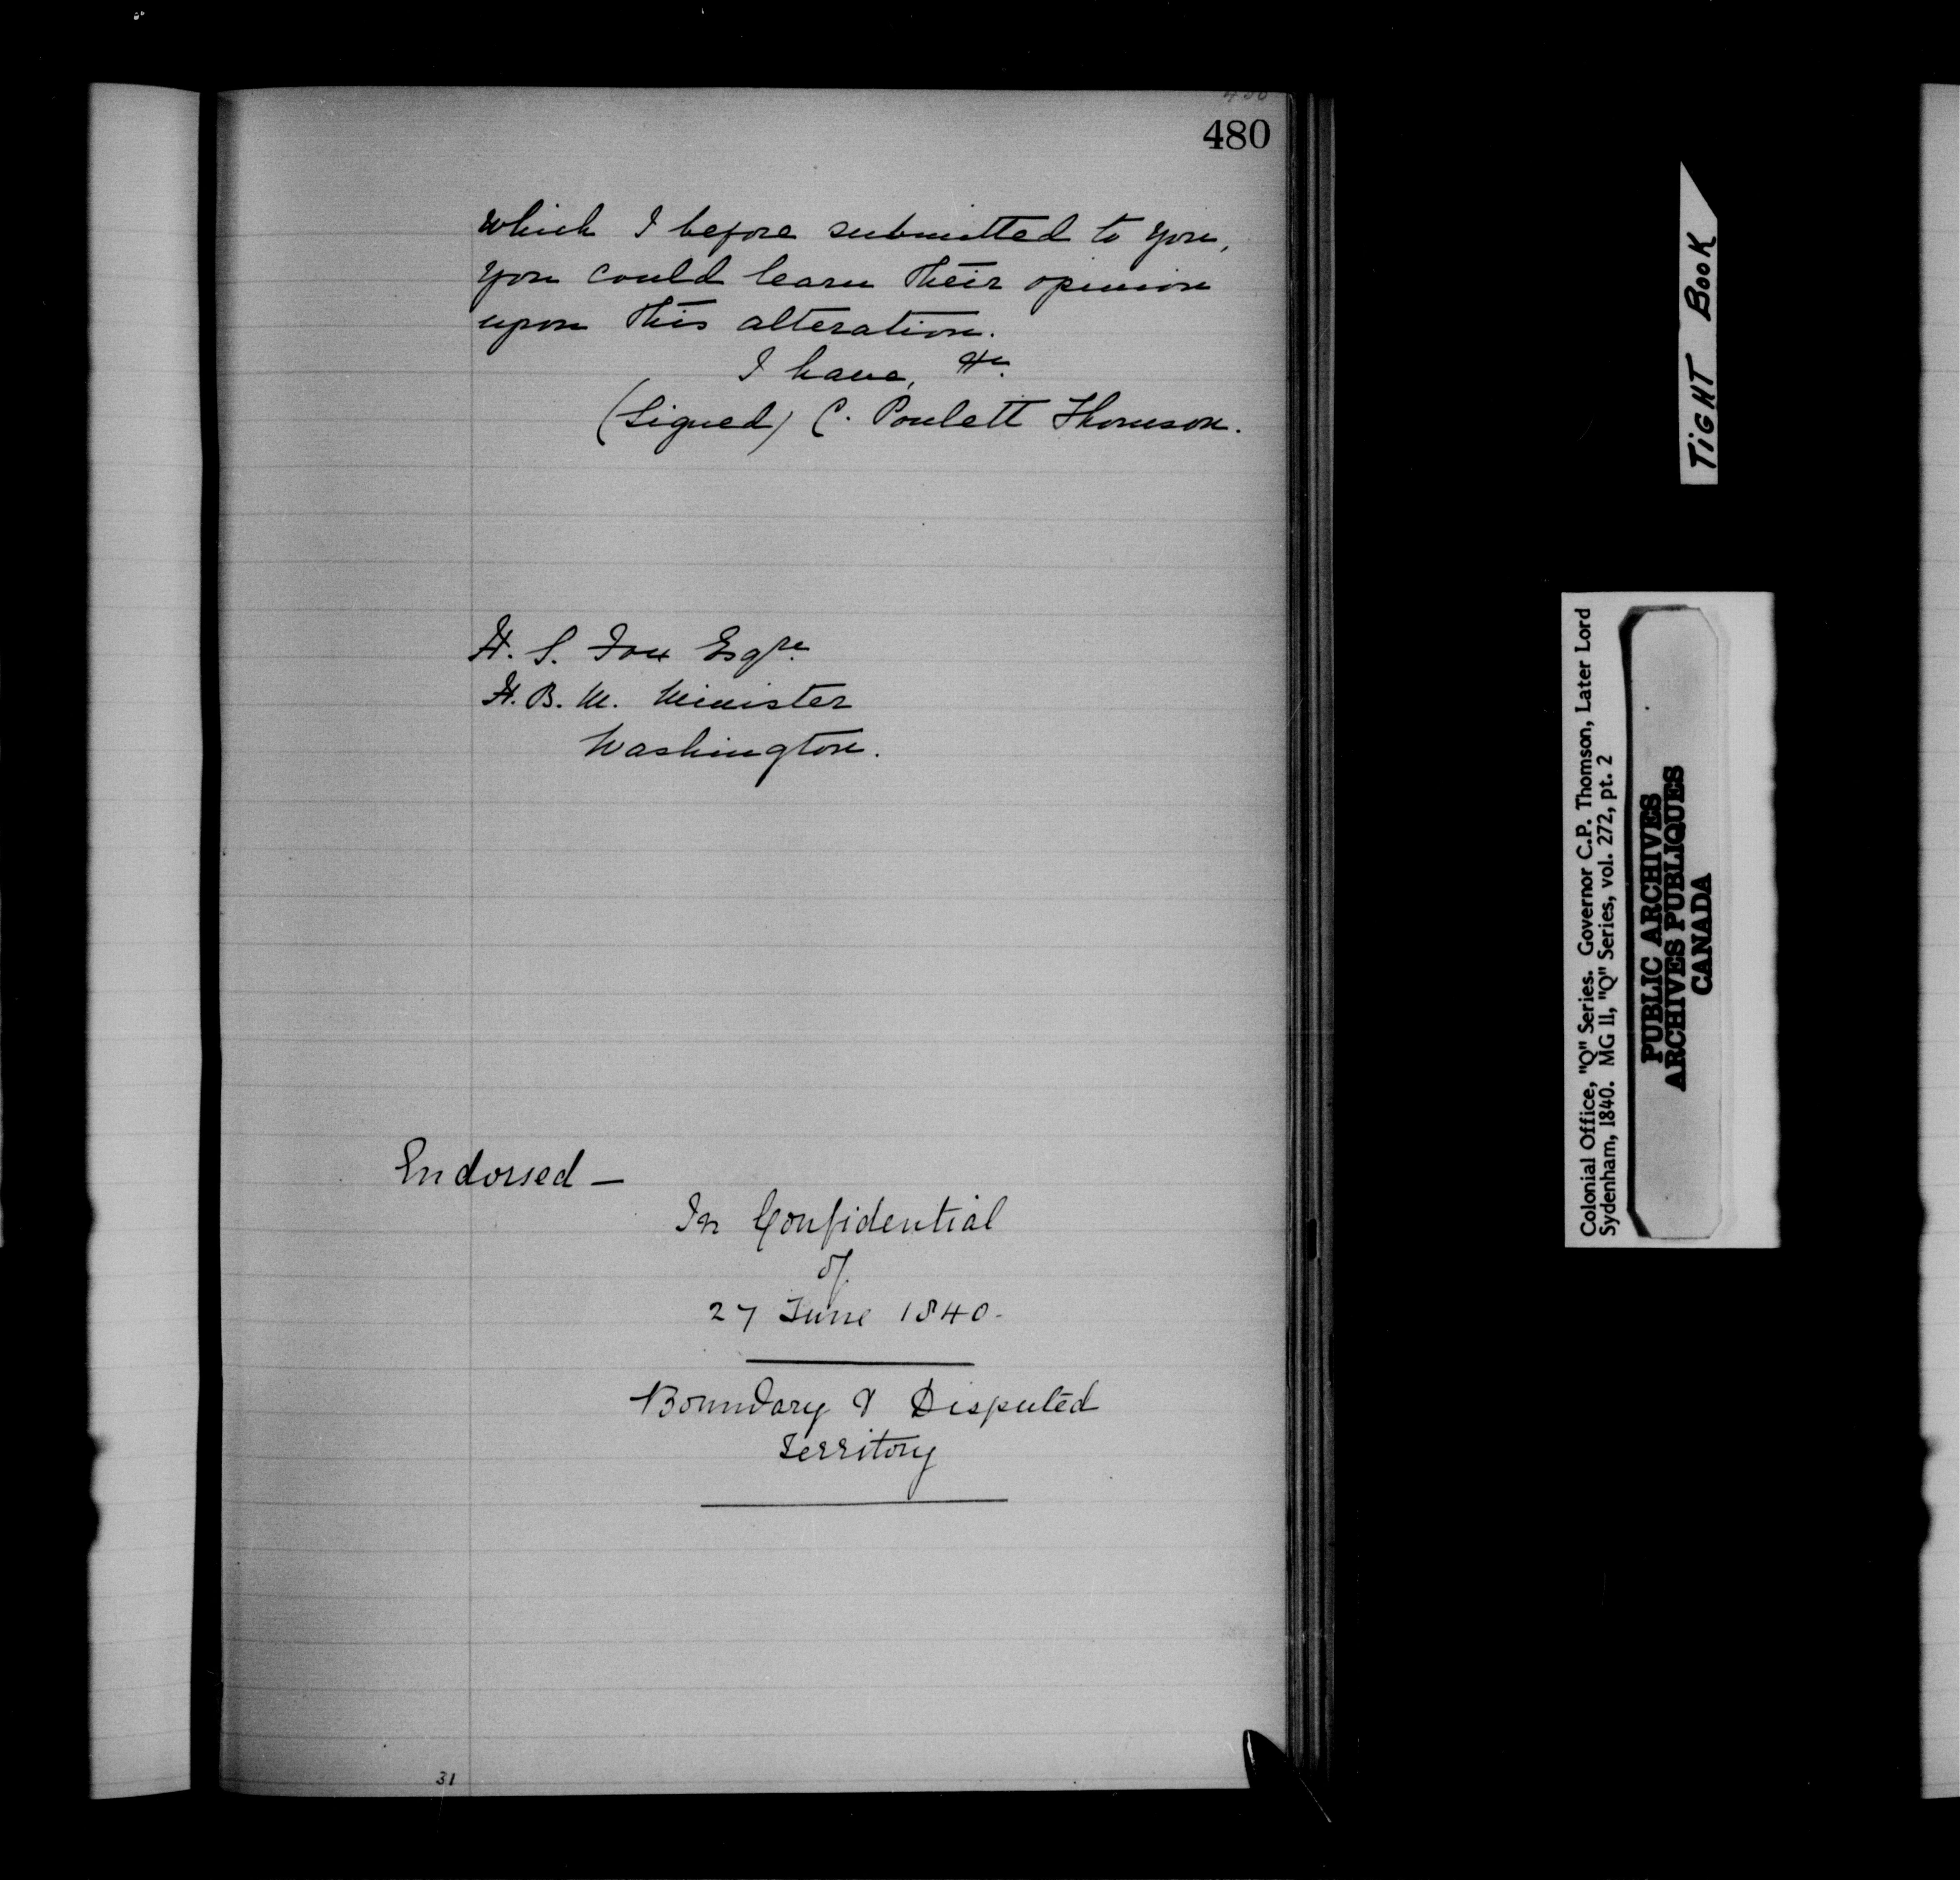 480
which I before submitted to you,
you could learn their opinion
upon this alteration.
I have, &c.
(Signed) C. Poulett Thomson.
H. S. Fox Esqre.
H. B. M. Minister
Washington.
Endorsed —
In Confidential
of
27 June 1840-
Boundary & Disputed
Territory
31
TIGHT BOOK
Colonial Office, "Q" Series. Governor C.P. Thomson, Later Lord
Sydenham, 1840. MG 11, "Q" Series, vol. 272, pt. 2
PUBLIC ARCHIVES
ARCHIVES PUBLIQUES
CANADA